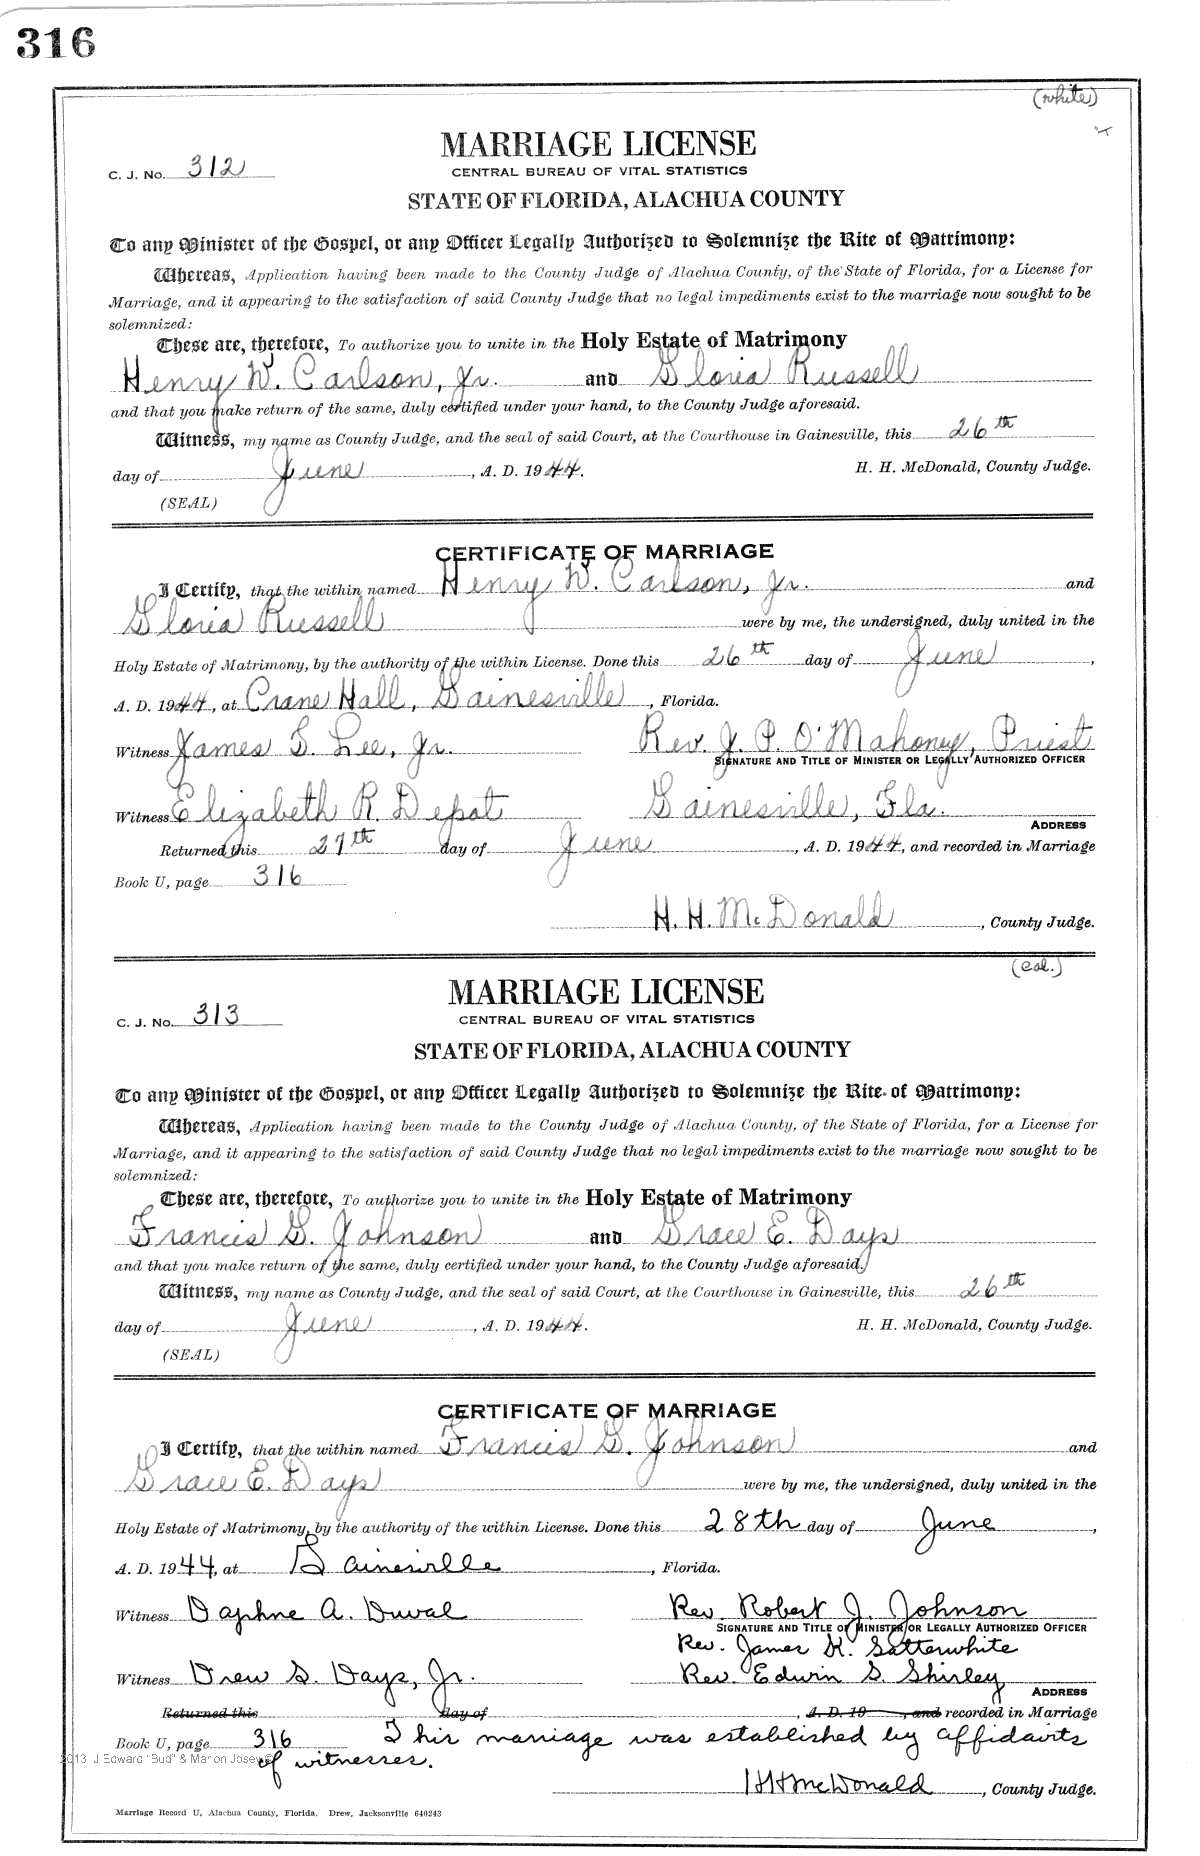 316
(white)
MARRIAGE LICENSE
C. J. No. 312
CENTRAL BUREAU OF VITAL STATISTICS
STATE OF FLORIDA, ALACHUA COUNTY
To any Minister of the Gospel, or any Officer Legally Authorized to Solemnize the Rite of Matrimony:
Whereas, Application having been made to the County Judge of Alachua County, of the State of Florida, for a License for
Marriage, and it appearing to the satisfaction of said County Judge that no legal impediments exist to the marriage now sought to be
solemnized:
These are, therefore, To authorize you to unite in the Holy Estate of Matrimony
Henry W. Carlson, Jr. and Gloria Russell
and that you make return of the same, duly certified under your hand, to the County Judge aforesaid.
Witness, my name as County Judge, and the seal of said Court, at the Courthouse in Gainesville, this 26th
day of June, A. D. 1944. H. H. McDonald, County Judge.
(SEAL)
CERTIFICATE OF MARRIAGE
I Certify, that the within named Henry W. Carlson, Jr. and
Gloria Russell were by me, the undersigned, duly united in the
Holy Estate of Matrimony, by the authority of the within License. Done this 26th day of June,
A. D. 1944, at Crane Hall, Gainesville, Florida.
Witness James S. Lee, Jr. Rev. J. P. O'Mahoney, Priest
SIGNATURE AND TITLE OF MINISTER OR LEGALLY AUTHORIZED OFFICER
Witness Elizabeth R. Depot Gainesville, Fla.
ADDRESS
Returned this 27th day of June, A. D. 1944, and recorded in Marriage
Book U, page 316
H. H. McDonald, County Judge.
(Col.)
MARRIAGE LICENSE
C. J. No. 313
CENTRAL BUREAU OF VITAL STATISTICS
STATE OF FLORIDA, ALACHUA COUNTY
To any Minister of the Gospel, or any Officer Legally Authorized to Solemnize the Rite of Matrimony:
Whereas, Application having been made to the County Judge of Alachua County, of the State of Florida, for a License for
Marriage, and it appearing to the satisfaction of said County Judge that no legal impediments exist to the marriage now sought to be
solemnized:
These are, therefore, To authorize you to unite in the Holy Estate of Matrimony
Francis G. Johnson and Grace E. Days
and that you make return of the same, duly certified under your hand, to the County Judge aforesaid.
Witness, my name as County Judge, and the seal of said Court, at the Courthouse in Gainesville, this 26th
day of June, A. D. 1944. H. H. McDonald, County Judge.
(SEAL)
CERTIFICATE OF MARRIAGE
I Certify, that the within named Francis G. Johnson and
Grace E. Days were by me, the undersigned, duly united in the
Holy Estate of Matrimony, by the authority of the within License. Done this 28th day of June,
A. D. 1944, at Gainesville, Florida.
Witness Daphne A. Duval Rev. Robert J. Johnson
SIGNATURE AND TITLE OF MINISTER OR LEGALLY AUTHORIZED OFFICER
Rev. James K. Satterwhite
Witness Drew S. Days, Jr. Rev. Edwin S. Shirley
ADDRESS
Returned this day of, A. D. 19, and recorded in Marriage
Book U, page 316 This marriage was established by affidavits
2013 J Edward "Bud" & Marion Josey
of witnesses.
HHMcDonald, County Judge.
Marriage Record U, Alachua County, Florida. Drew, Jacksonville 640243